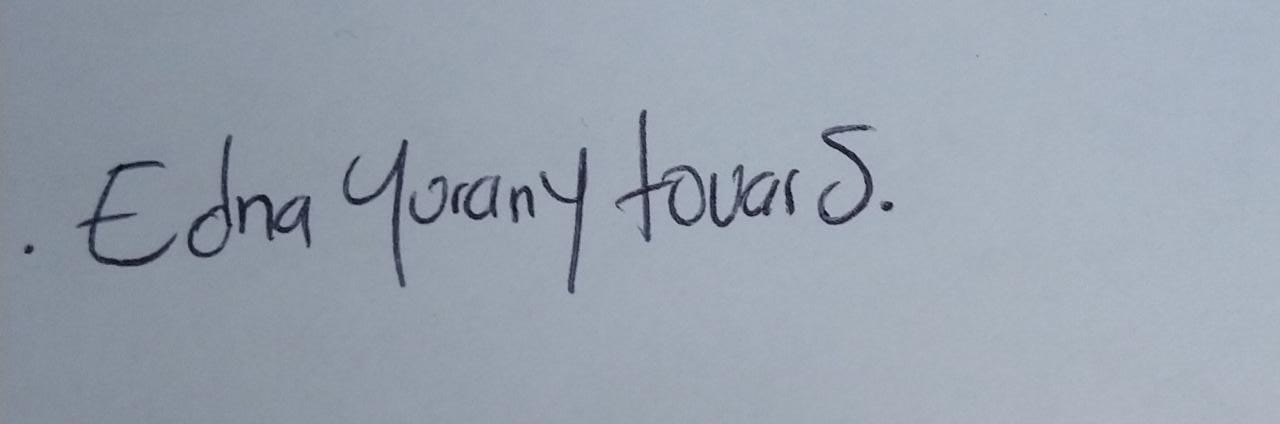 . Edna Yorany tovar S.